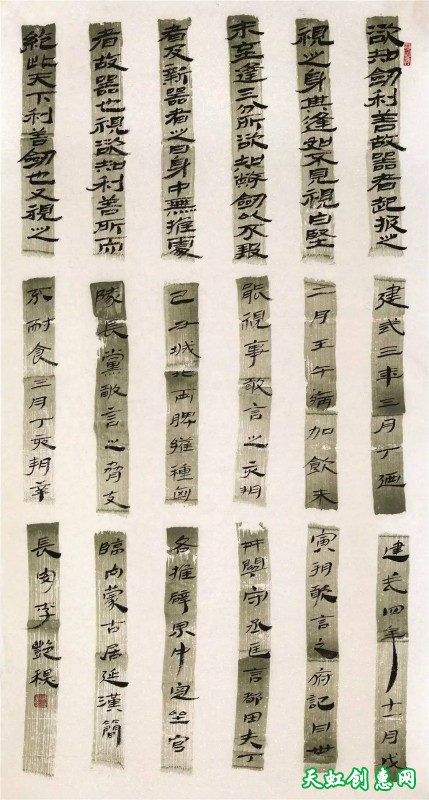 欲知劒利善故器者起报之
視之身無逢如不見視白堅
未至逢三分所欲知幣劒以不報
者及新器者之日身中無推處
者故器也視欲知利善所而
絶此天下利善劒也又視之
建武三年三月丁迺
二月壬午病加飲未
能視事敢言之亥朔
己丑城北兩脾雍種匈
隊長黨敢言之脅支
不耐食三月丁亥朔辛
建武四年十一月戊
寅朔敢言之府記曰卅
井關守丞匡言都田夫丁
各推辟界中定坐官
臨內蒙古居延漢簡
長安李艷
天虹创惠网